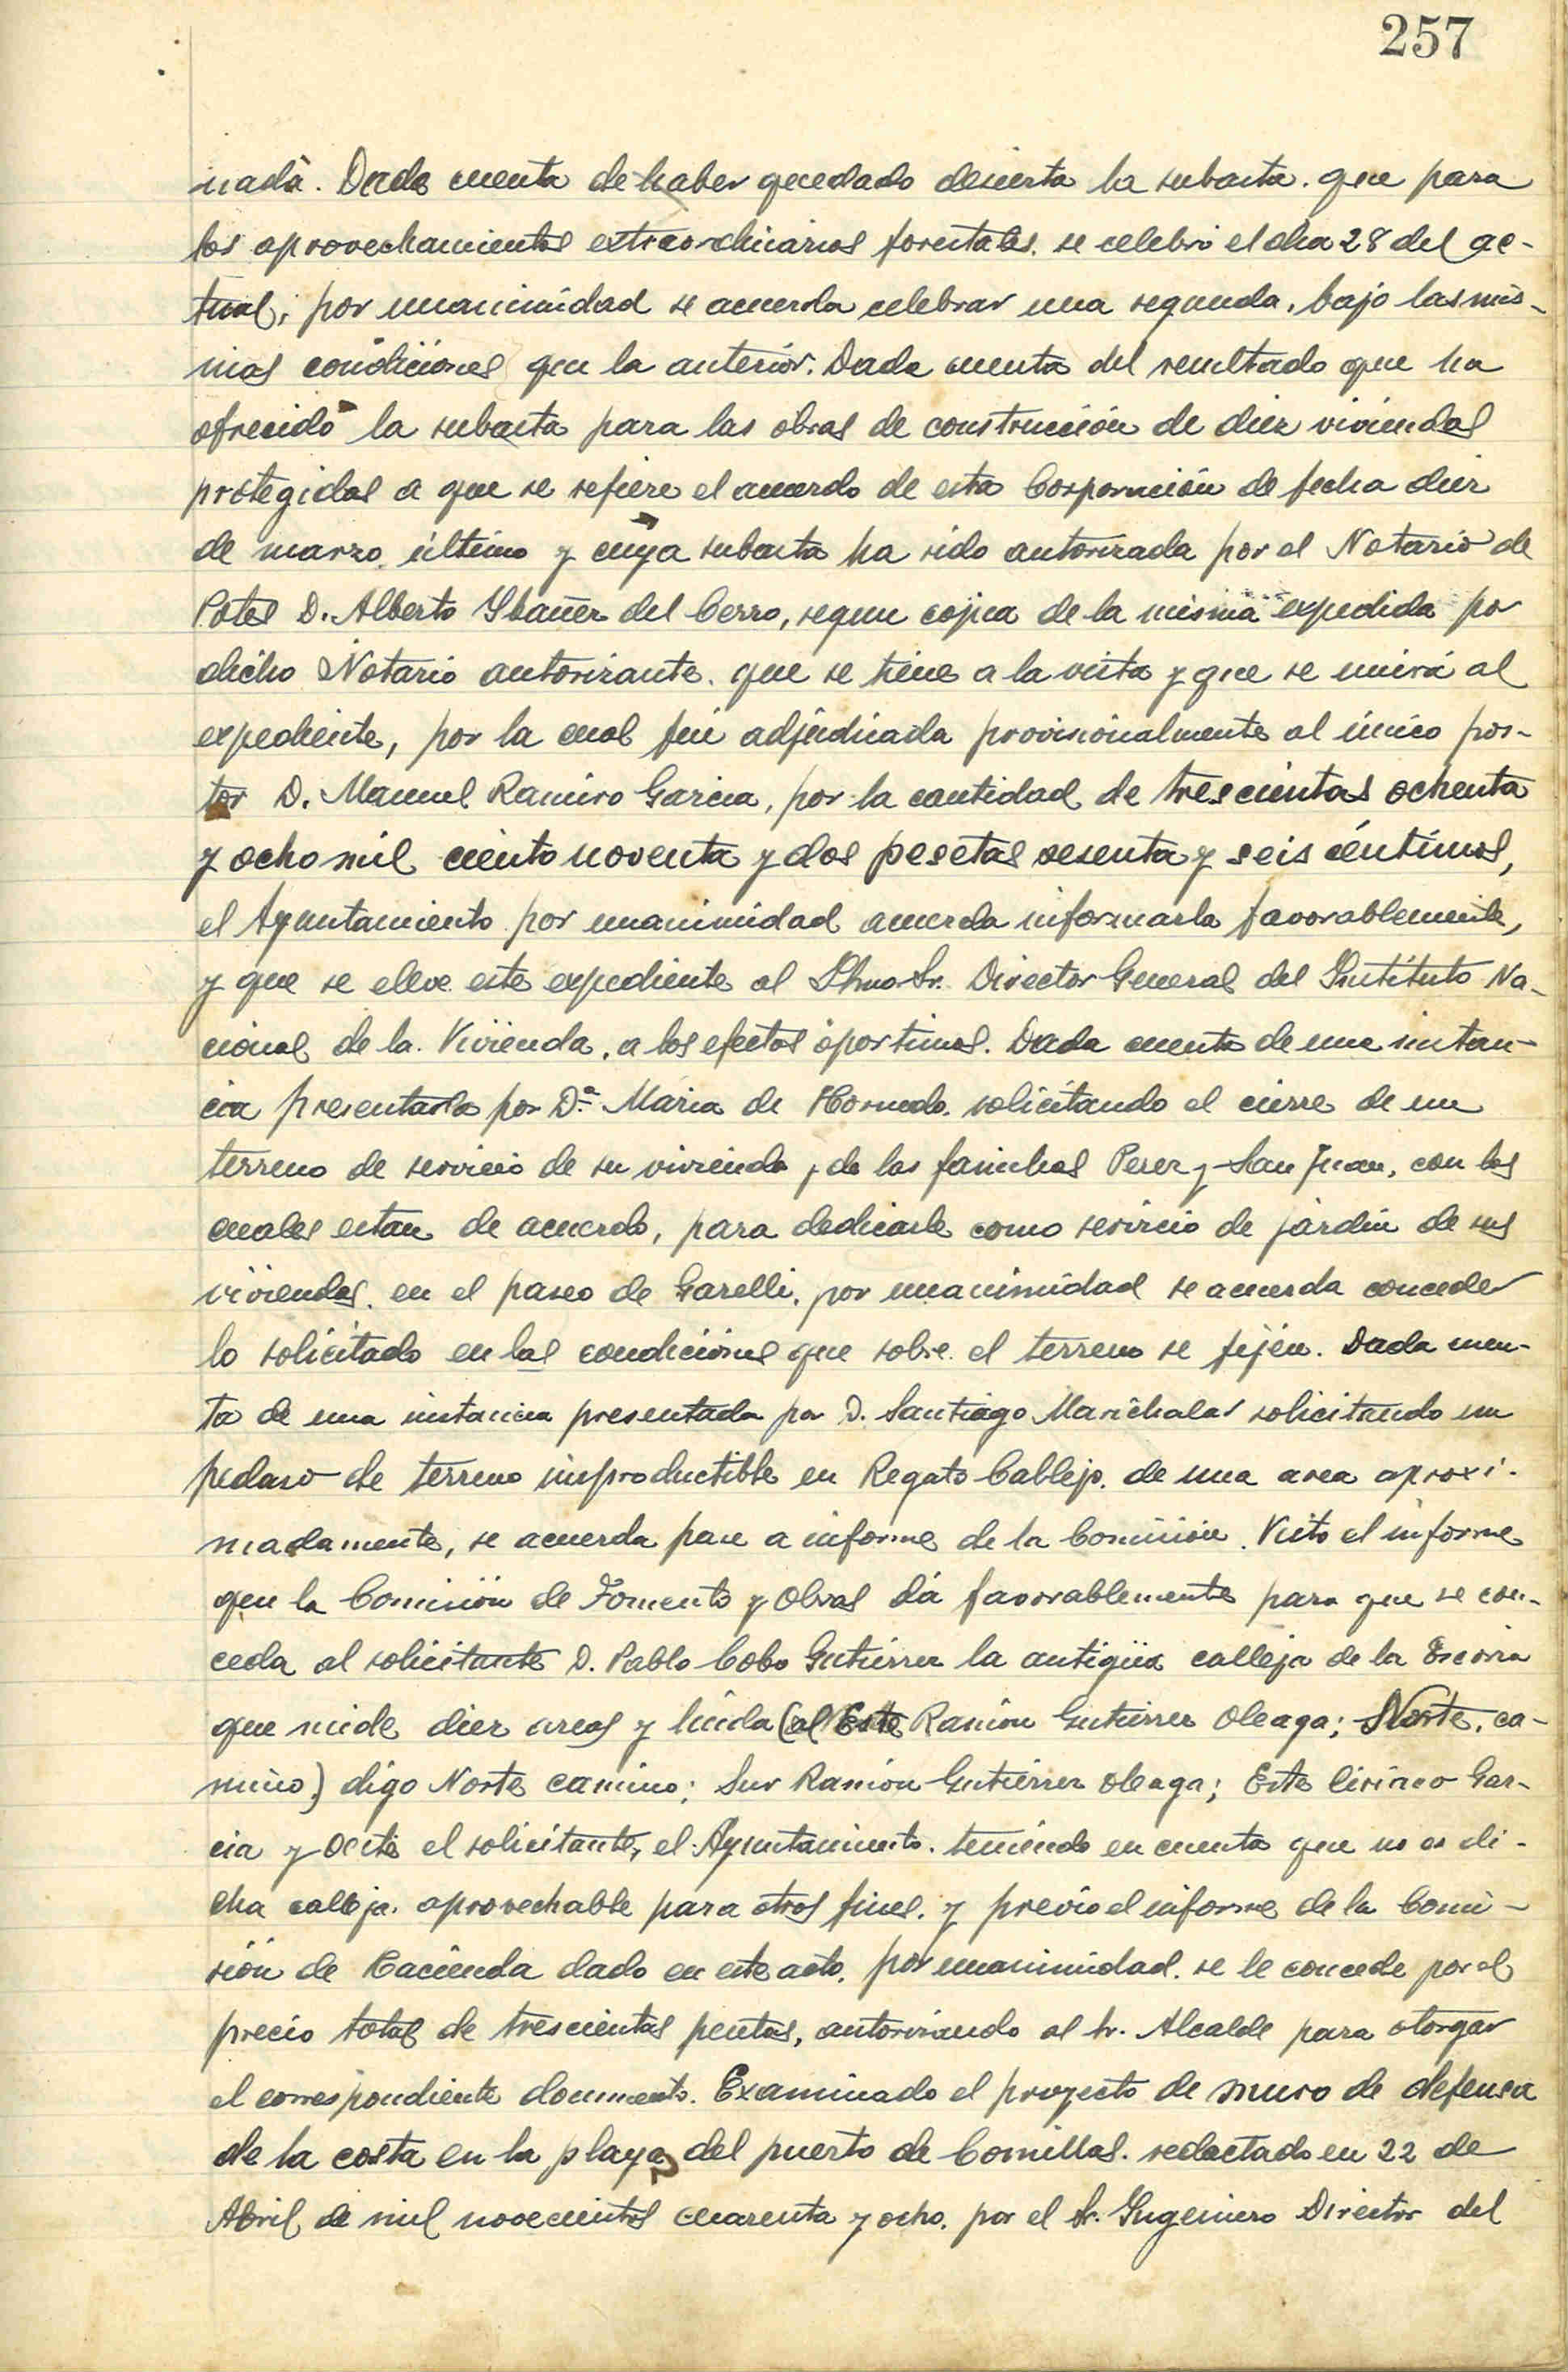 257
nada. Dada cuenta de haber quedado desierta la subasta. que para
los aprovechamientos extraordinarios forestales. se celebró el dia 28 del ac-
tual, por unanimidad se acuerda celebrar una segunda, bajo las mis-
mas condiciones que la anterior. Dada cuenta del resultado que ha
ofrecido la subasta para las obras de construcción de diez viviendas
protegidas a que se refiere el acuerdo de esta Corporación de fecha diez
de marzo último y cuya subasta ha sido autorizada por el Notario de
Potes D. Alberto Ybañez del Cerro, segun copia de la misma expedida por
dicho Notario autorizante. que se tiene a la vista y que se unirá al
expediente, por la cual fué adjudicada provisionalmente al único pos-
tor D. Manuel Ramiro Garcia, por la cantidad de trescientas ochenta
y ocho mil ciento noventa y dos pesetas sesenta y seis céntimos,
el Ayuntamiento por unanimidad acuerda informarla favorablemente,
y que se eleve este expediente al Ylmo Sr. Director General del Ynstituto Na-
cional de la Vivienda, a los efectos oportunos. Dada cuenta de una instan-
cia presentada por Dª Maria de Hornedo. solicitando el cierre de un
terreno de servicio de su vivienda y de las familias Perez y San Juan, con los
cuales estan de acuerdo, para dedicarle como servicio de jardin de sus
viviendas. en el paseo de Garelli, por unanimidad se acuerda conceder
lo solicitado en las condiciones que sobre el terreno se fijen. Dada cuen-
ta de una instancia presentada por D. Santiago Marichalar solicitando un
pedazo de terreno improductible en Regato Callejo. de una area aproxi-
madamente, se acuerda pase a informe de la Comisión. Visto el informe
que la Comisión de Fomento y Obras dá favorablemente para que se con-
ceda al solicitante D. Pablo Cobo Gutierrez la antigüa calleja de la Escoria
que mide diez areas y linda (al Este Ramón Gutierrez Oleaga; Norte, ca-
mino) digo Norte camino; Sur Ramón Gutierrez Oleaga; Este Ciriaco Gar-
cia y Oeste el solicitante, el Ayuntamiento. teniendo en cuenta que no es di-
cha calleja. aprovechable para otros fines. y previo el informe de la Comi-
sión de Hacienda dado en este acto, por unanimidad. se le concede por el
precio total de trescientas pesetas, autorizando al Sr. Alcalde para otorgar
el correspondiente documento. Examinado el proyecto de muro de defensa
de la costa en la playa del puerto de Comillas. redactado en 22 de
Abril de mil novecientos cuarenta y ocho. por el Sr. Yngeniero Director del